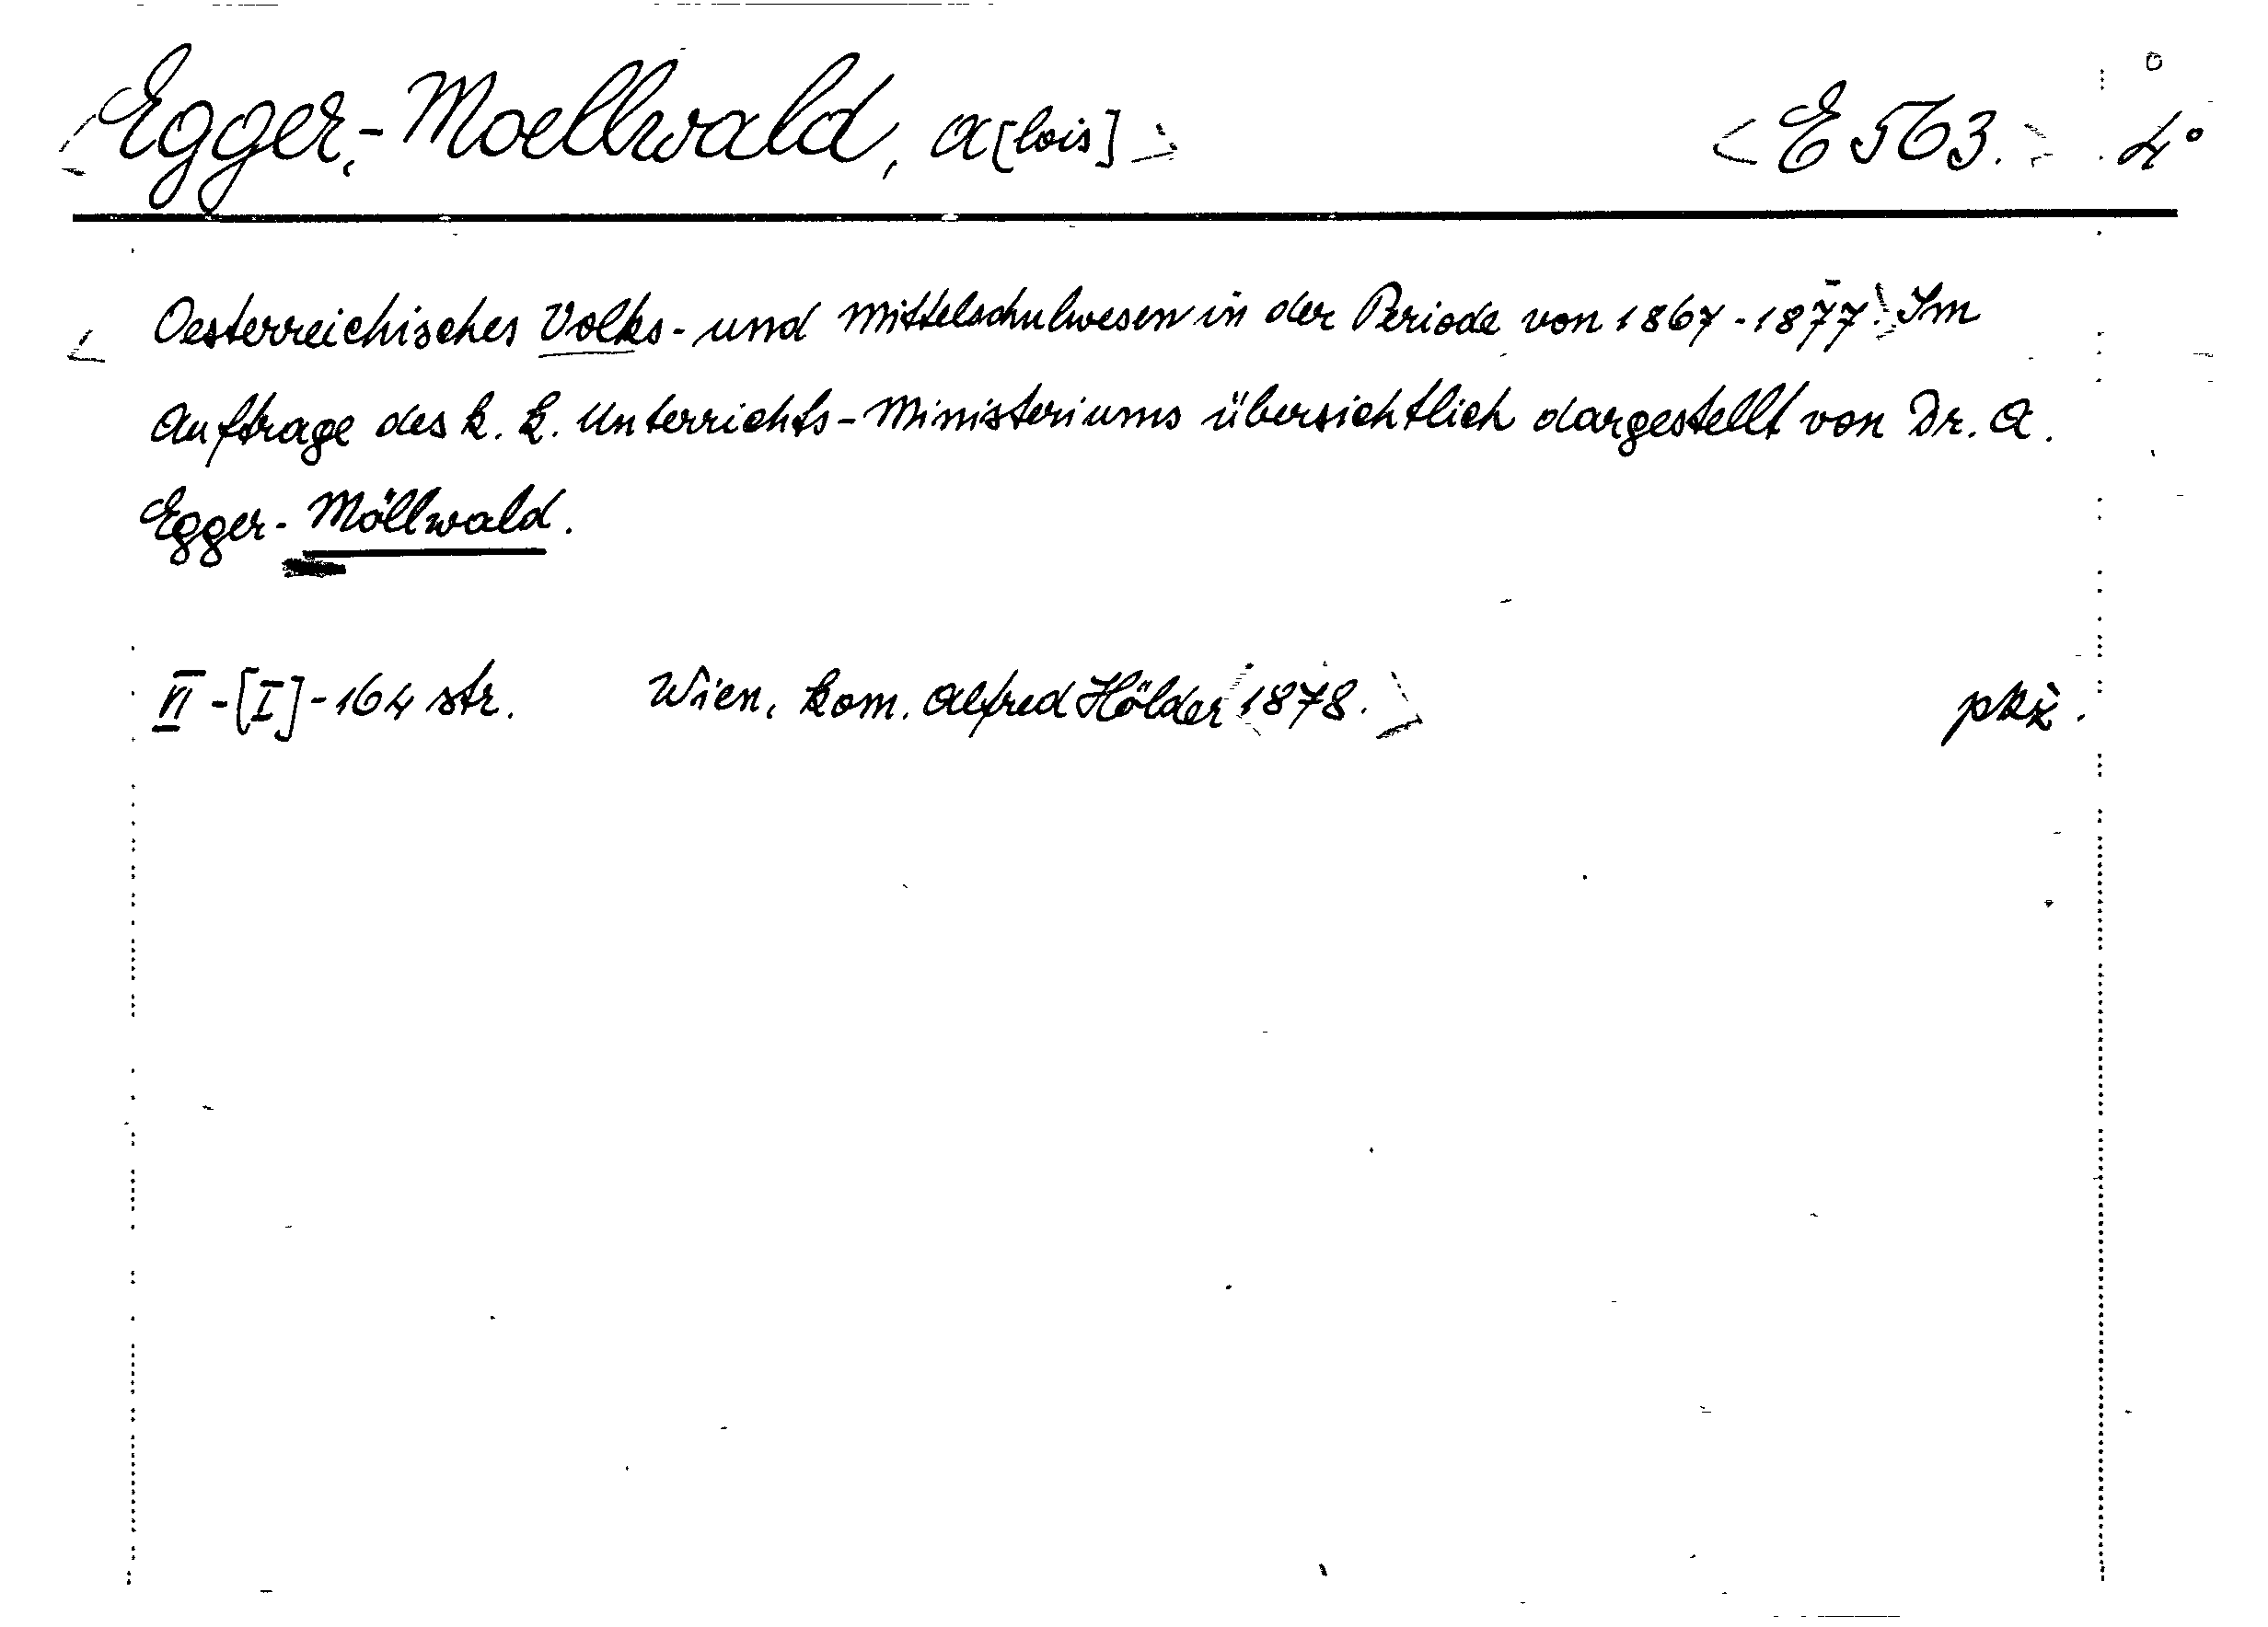 Egger,-Moellwald, A[lois] <E 563.> 4°
Oesterreichisches Volks- und Mittelschulwesen in der Periode von 1867-1877. Im
Auftrage des k. k. Unterrichts-Ministeriums übersichtlich dargestellt von Dr. A.
Egger-Möllwald.
VI-[I]-164 str. Wien, kom. Alfred Hölder 1878.